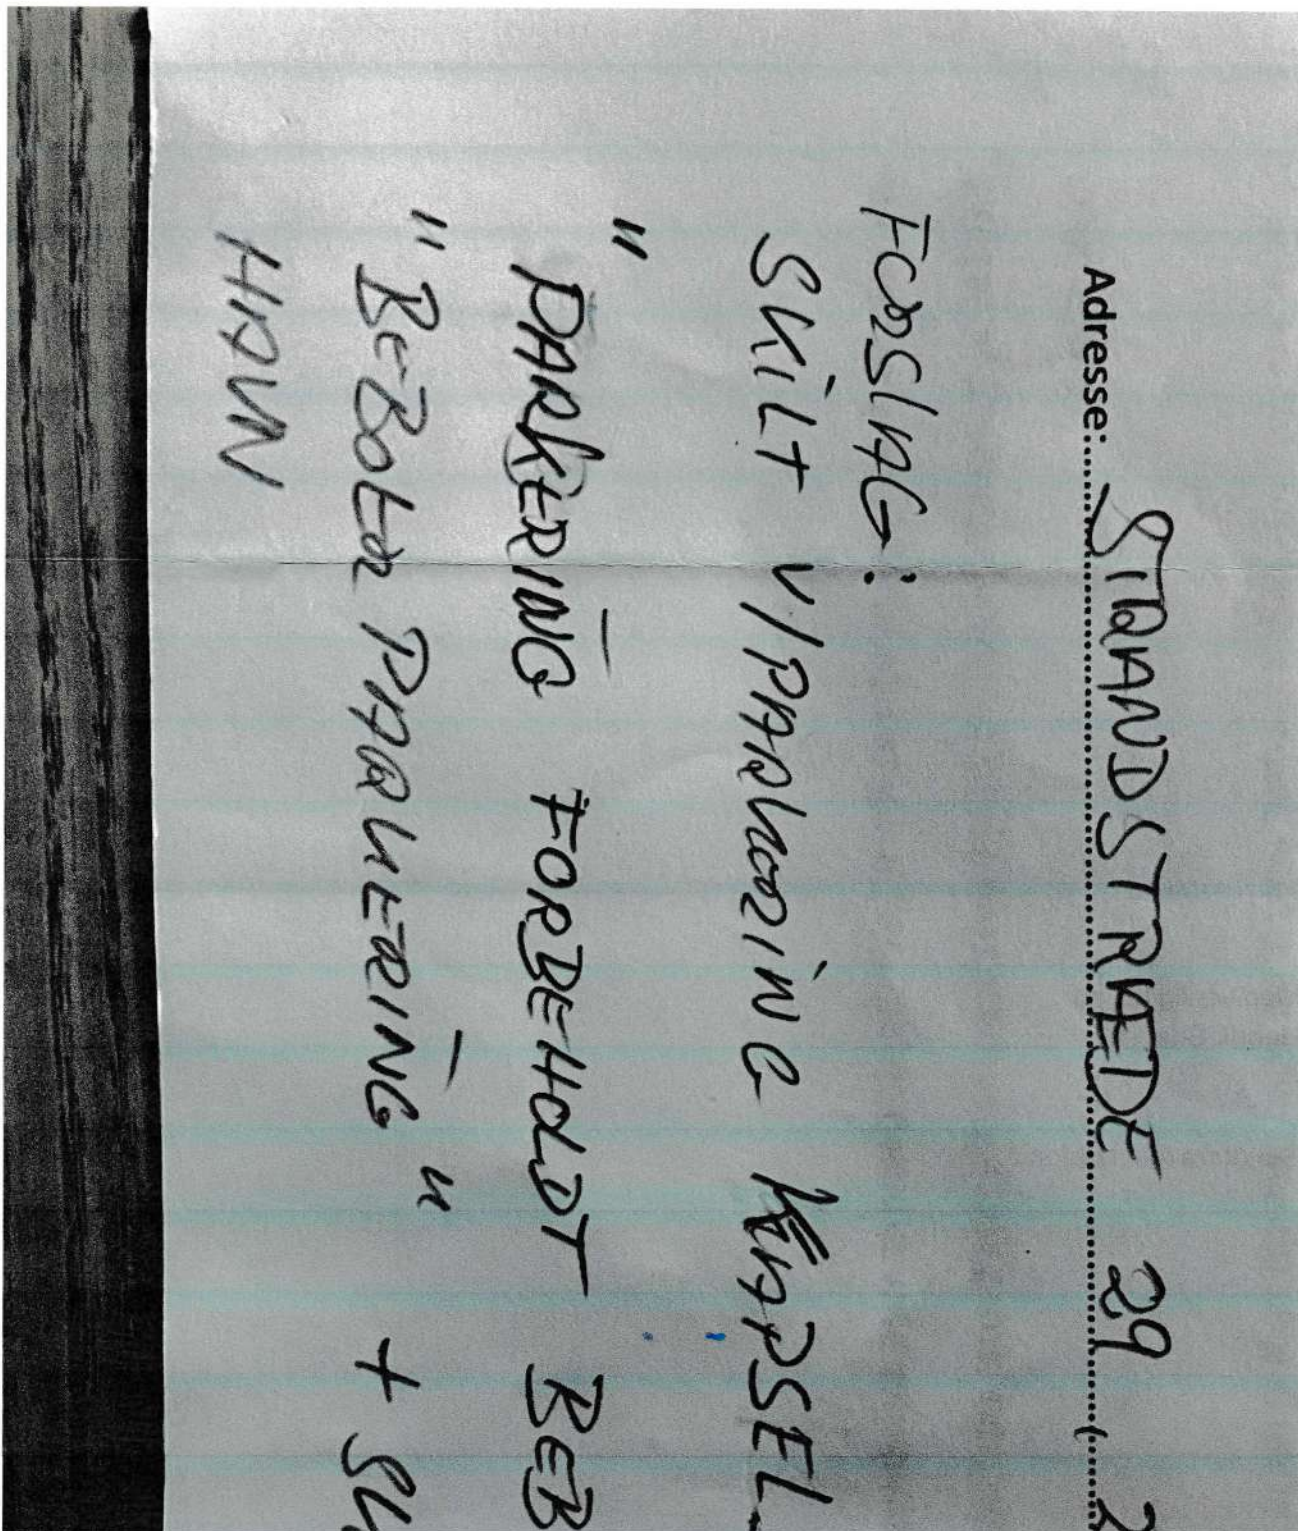 Adresse: STRANDSTRÆDE 29, 2
FORSLAG:
SKILT V/PARKERING KAPSEL
" PARKERING FORBEHOLDT BEB
" BEBOER PARKERING " + SK
HAVN